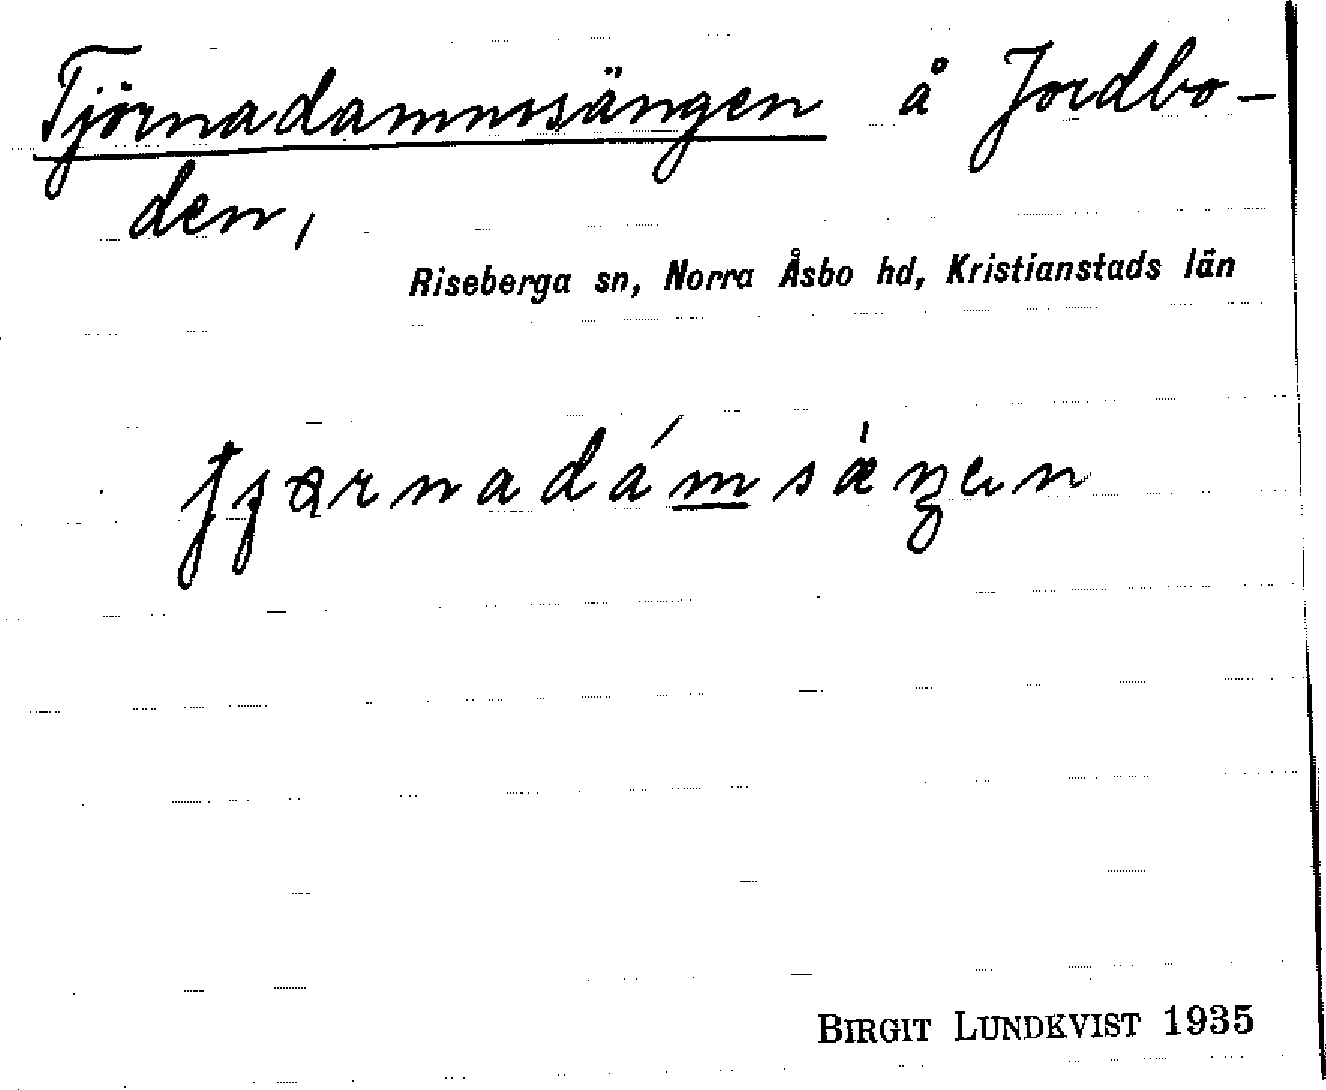 Tjörnadammsängen å Jordbo-
den,
Riseberga sn, Norra Åsbo hd, Kristianstads län
BIRGIT LUNDKVIST 1935